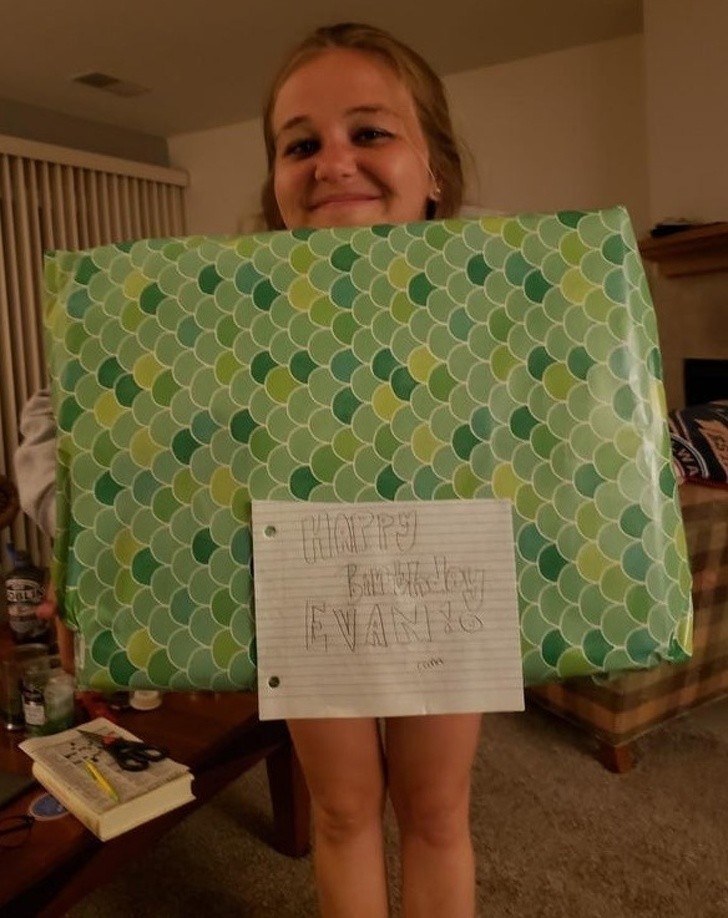 HAPPY
Birthday
EVAN!!